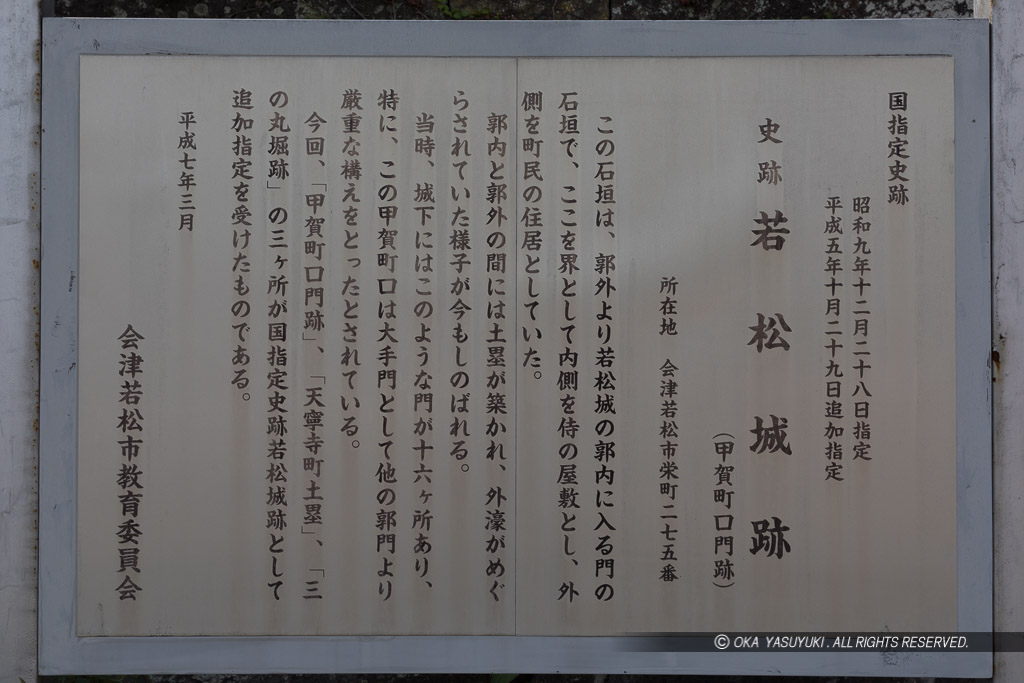 国指定史跡
昭和九年十二月二十八日指定
平成五年十月二十九日追加指定
史跡 若松城跡
（甲賀町口門跡）
所在地 会津若松市栄町二七五番
この石垣は、郭外より若松城の郭内に入る門の
石垣で、ここを界として内側を侍の屋敷とし、外
側を町民の住居としていた。
郭内と郭外の間には土塁が築かれ、外濠がめぐ
らされていた様子が今もしのばれる。
当時、城下にはこのような門が十六ヶ所あり、
特に、この甲賀町口は大手門として他の郭門より
厳重な構えをとったとされている。
今回、「甲賀町口門跡」、「天寧寺町土塁」、「三
の丸堀跡」の三ヶ所が国指定史跡若松城跡として
追加指定を受けたものである。
平成七年三月
会津若松市教育委員会
© OKA YASUYUKI. ALL RIGHTS RESERVED.